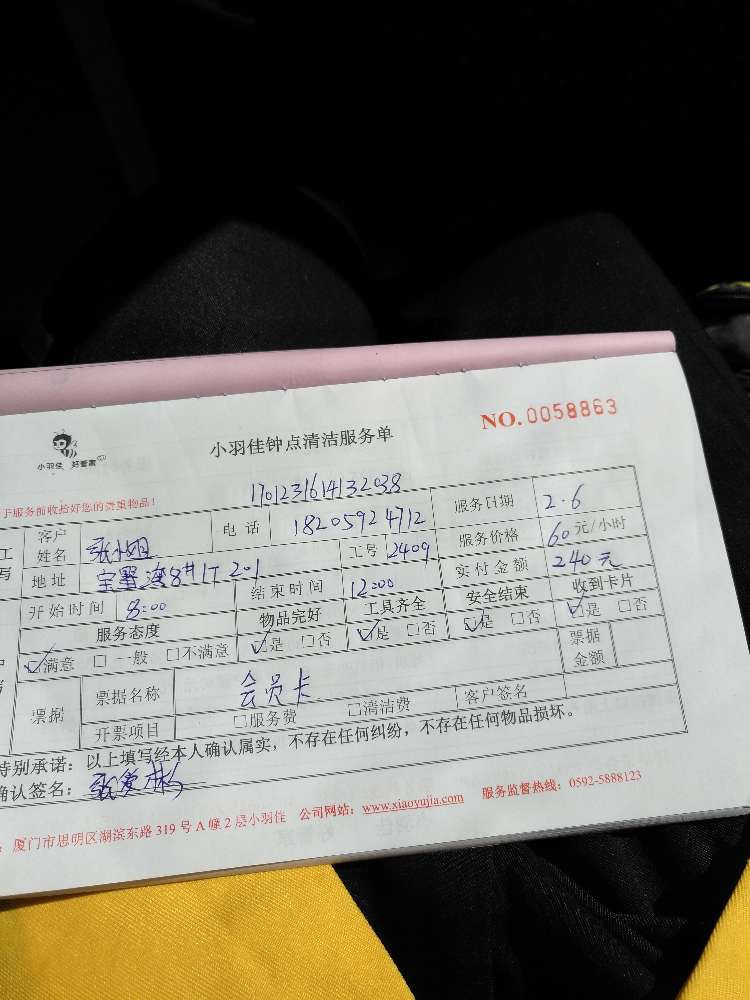 NO. 0058863
小羽佳钟点清洁服务单
小羽佳 好管家
于服务前收拾好您的贵重物品!
170123161413 2038
工 客户姓名 张小姐 电话 18205924712 服务日期 2.6
写 地址 宝墅湾8#1T201 工号 2409 服务价格 60元/小时
开始时间 8:00 结束时间 12:00 实付金额 240元
服务态度 物品完好 工具齐全 安全结束 收到卡片
☑满意 □一般 □不满意 ☑是 □否 ☑是 □否 ☑是 □否 ☑是 □否
票据 票据名称 会员卡 票据金额
开票项目 □服务费 □清洁费 客户签名
特别承诺:以上填写经本人确认属实,不存在任何纠纷,不存在任何物品损坏。
确认签名:张爱彬
:厦门市思明区湖滨东路319号A幢2层小羽佳 公司网站:www.xiaoyujia.com 服务监督热线:0592-5888123